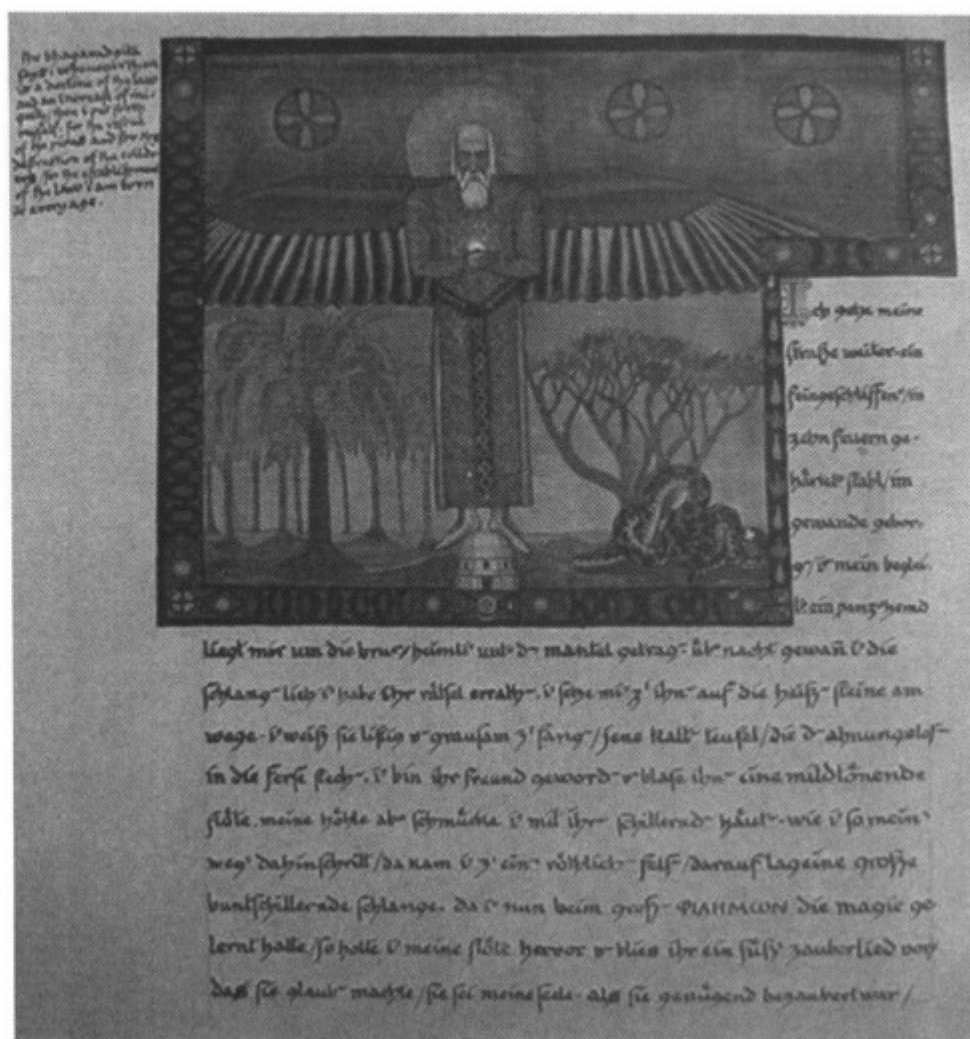 the bhagavadgita
says: whenever there
is a decline of the law
and an increase of ini-
quity / then i put forth
myself. for the rescue
of the pious and for the
destruction of the evildo-
ers / for the establishment
of the law i am born
in every age.
Ich gehe meine
straße weiter. ein
feingeschliffen' / in
zehn feuern ge-
härtet' stahl / im
gewande gebor-
g' / i' mein beglei-
t'. ein panz'hemd
liegt mir um die brust / heimli' unt' d' mantel getrag'. üb' nacht gewañ i' die
schlang' lieb / i' habe ihr räthsel errath'. i' setze mi' z' ihn' auf die heiß' steine am
wege. i' weiß sie listig u' grausam z' fang' / jene kalt' teufel / die d' ahnungslos'
in die ferse stech'. i' bin ihr freund geword' u' blase ihn' eine mildtönende
flöte. meine höhle ab' schmücke i' mit ihr' schillernd' häut'. wie i' so mein'
weg' dahinschritt / da kam i' z' ein' röthlich' fels / darauf lag eine große
buntschillernde schlange. da i' nun beim groß' ΦΙΛΗΜΩΝ die magie ge-
lernt hatte / so holte i' meine flöte hervor u' blies ihr ein süß' zauberlied vor /
das sie glaub' machte / sie sei meine seele. als sie genügend bezaubert war /